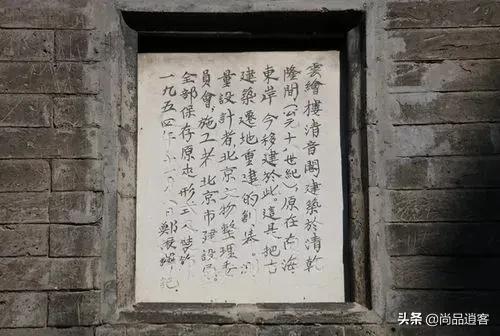 雲繪樓清音閣建築於清乾
隆間(公元十八世紀)原在南海
東岸今移建於此。這是把古
建築遷地重建的創舉。測
量設計者北京文物整理委
員會,施工者北京市建設局。
全部保存原來形
一九五四年十 月八日鄭振鐸記
头条 @尚品逍客